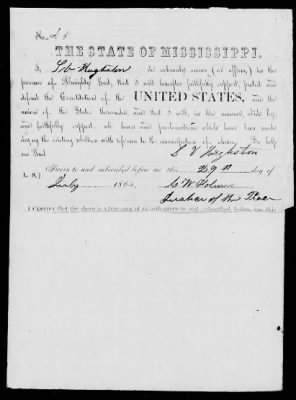 No.
THE STATE OF MISSISSIPPI.
I, Hughston do solemnly swear (or affirm,) in the
presence of Almighty God, that I will hereafter faithfully support, protect and
defend the Constitution of the UNITED STATES, and the
union of the States thereunder, and that I will, in like manner, abide by,
and faithfully support all laws and proclamations which have been made
during the existing rebellion with reference to the emancipation of slaves, So help
me God.
Hughston
Sworn to and subscribed before me this 29 day of
July 1865,
W Holmes
Justice of the Peace
I CERTIFY that the above is a true copy of